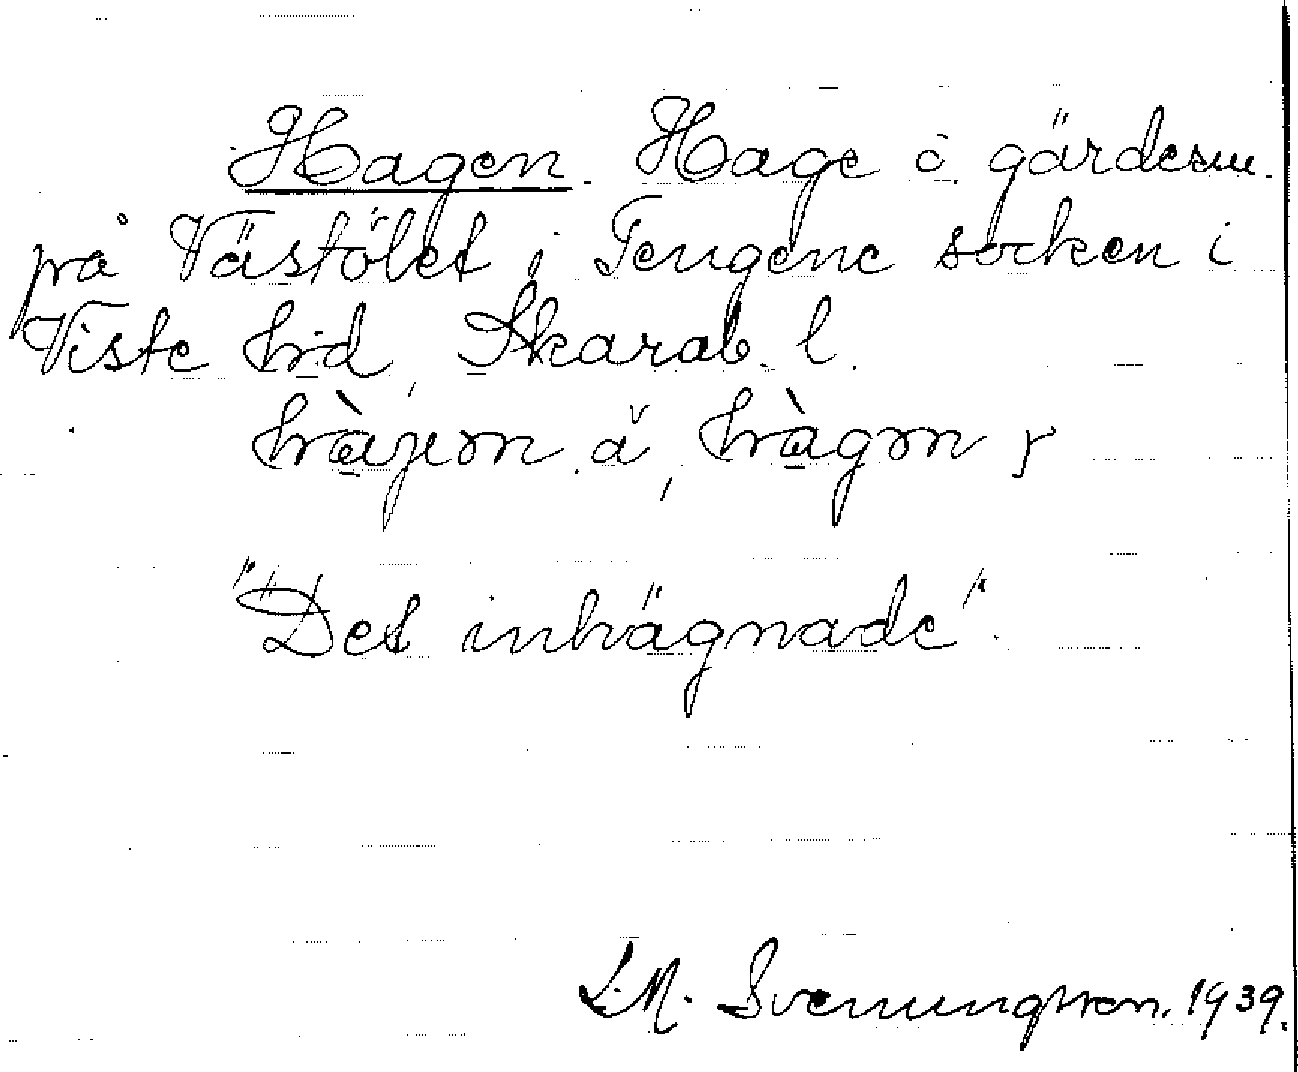 Hagen. Hage o. gärdesn.
på Västölet i Tengene socken i
Viste hrd, Skarab. l.
hàjen å, hàgen r
"Det inhägnade".
S.M. Svenungsson. 1939.